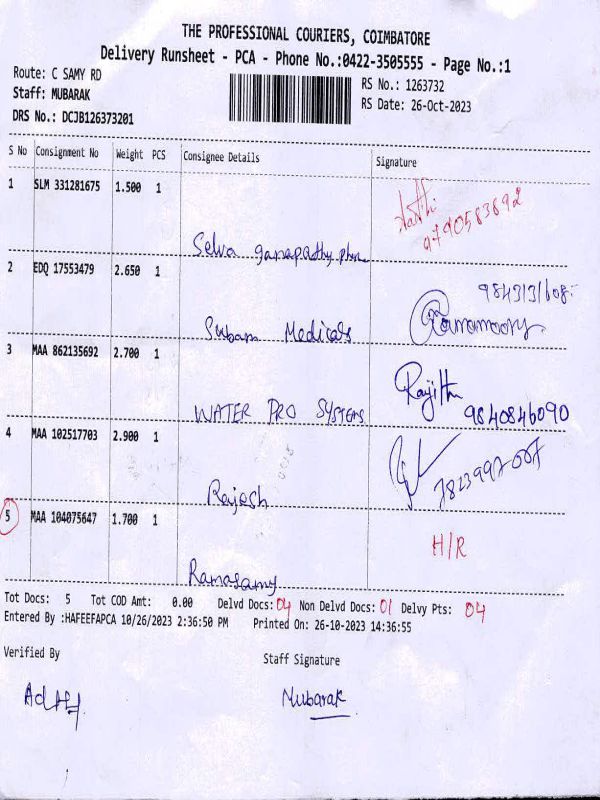 THE PROFESSIONAL COURIERS, COIMBATORE
Delivery Runsheet - PCA - Phone No.:0422-3505555 - Page No.:1
Route: C SAMY RD
RS No.: 1263732
Staff: MUBARAK
RS Date: 26-Oct-2023
DRS No.: DCJB126373201
S No Consignment No Weight PCS Consignee Details Signature
1 SLM 331281675 1.500 1
9790583692
Selva ganapathy
2 EDQ 17553479 2.650 1
Subam Medicals
3 MAA 862135692 2.700 1
Rayjith
WATER PRO SYSTEMS 9840846090
4 MAA 102517703 2.900 1
Rajesh
5 MAA 104075647 1.700 1
H/R
Ramasamy
Tot Docs: 5 Tot COD Amt: 0.00 Delvd Docs: 04 Non Delvd Docs: 01 Delvy Pts: 04
Entered By :HAFEEFAPCA 10/26/2023 2:36:50 PM Printed On: 26-10-2023 14:36:55
Verified By Staff Signature
Mubarak